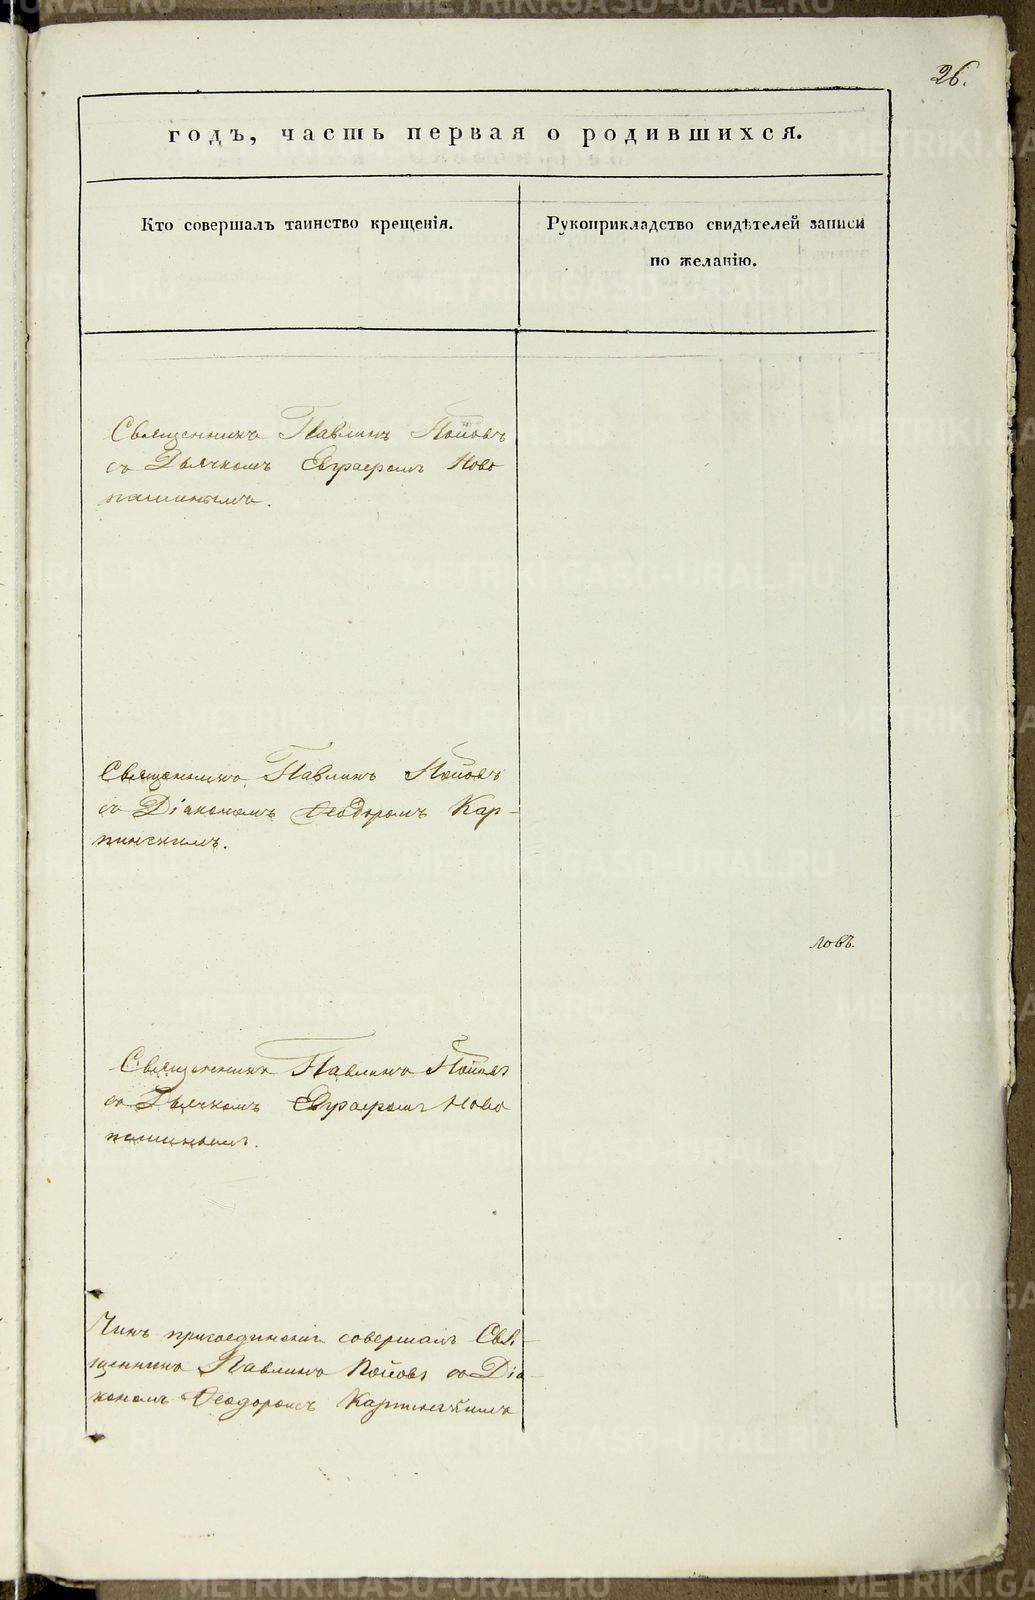 26.
годъ, часть первая о родившихся.
Кто совершалъ таинство крещенія.
Рукоприкладство свидѣтелей записи
по желанію.
Священникъ Павлинъ Поповъ
съ Дьячкомъ Евграфомъ Ново
пашинымъ.
Священникъ Павлинъ Поповъ
съ Діакономъ Ѳеодоромъ Кар-
пинскимъ.
ловъ.
Священникъ Павлинъ Поповъ
съ Дьячкомъ Евграфомъ Ново
пашинымъ.
Чинъ присоединенія совершалъ Свя-
щенникъ Павлинъ Поповъ съ Діа-
кономъ Ѳеодоромъ Карпинскимъ
METRIKI.GASO-URAL.RU